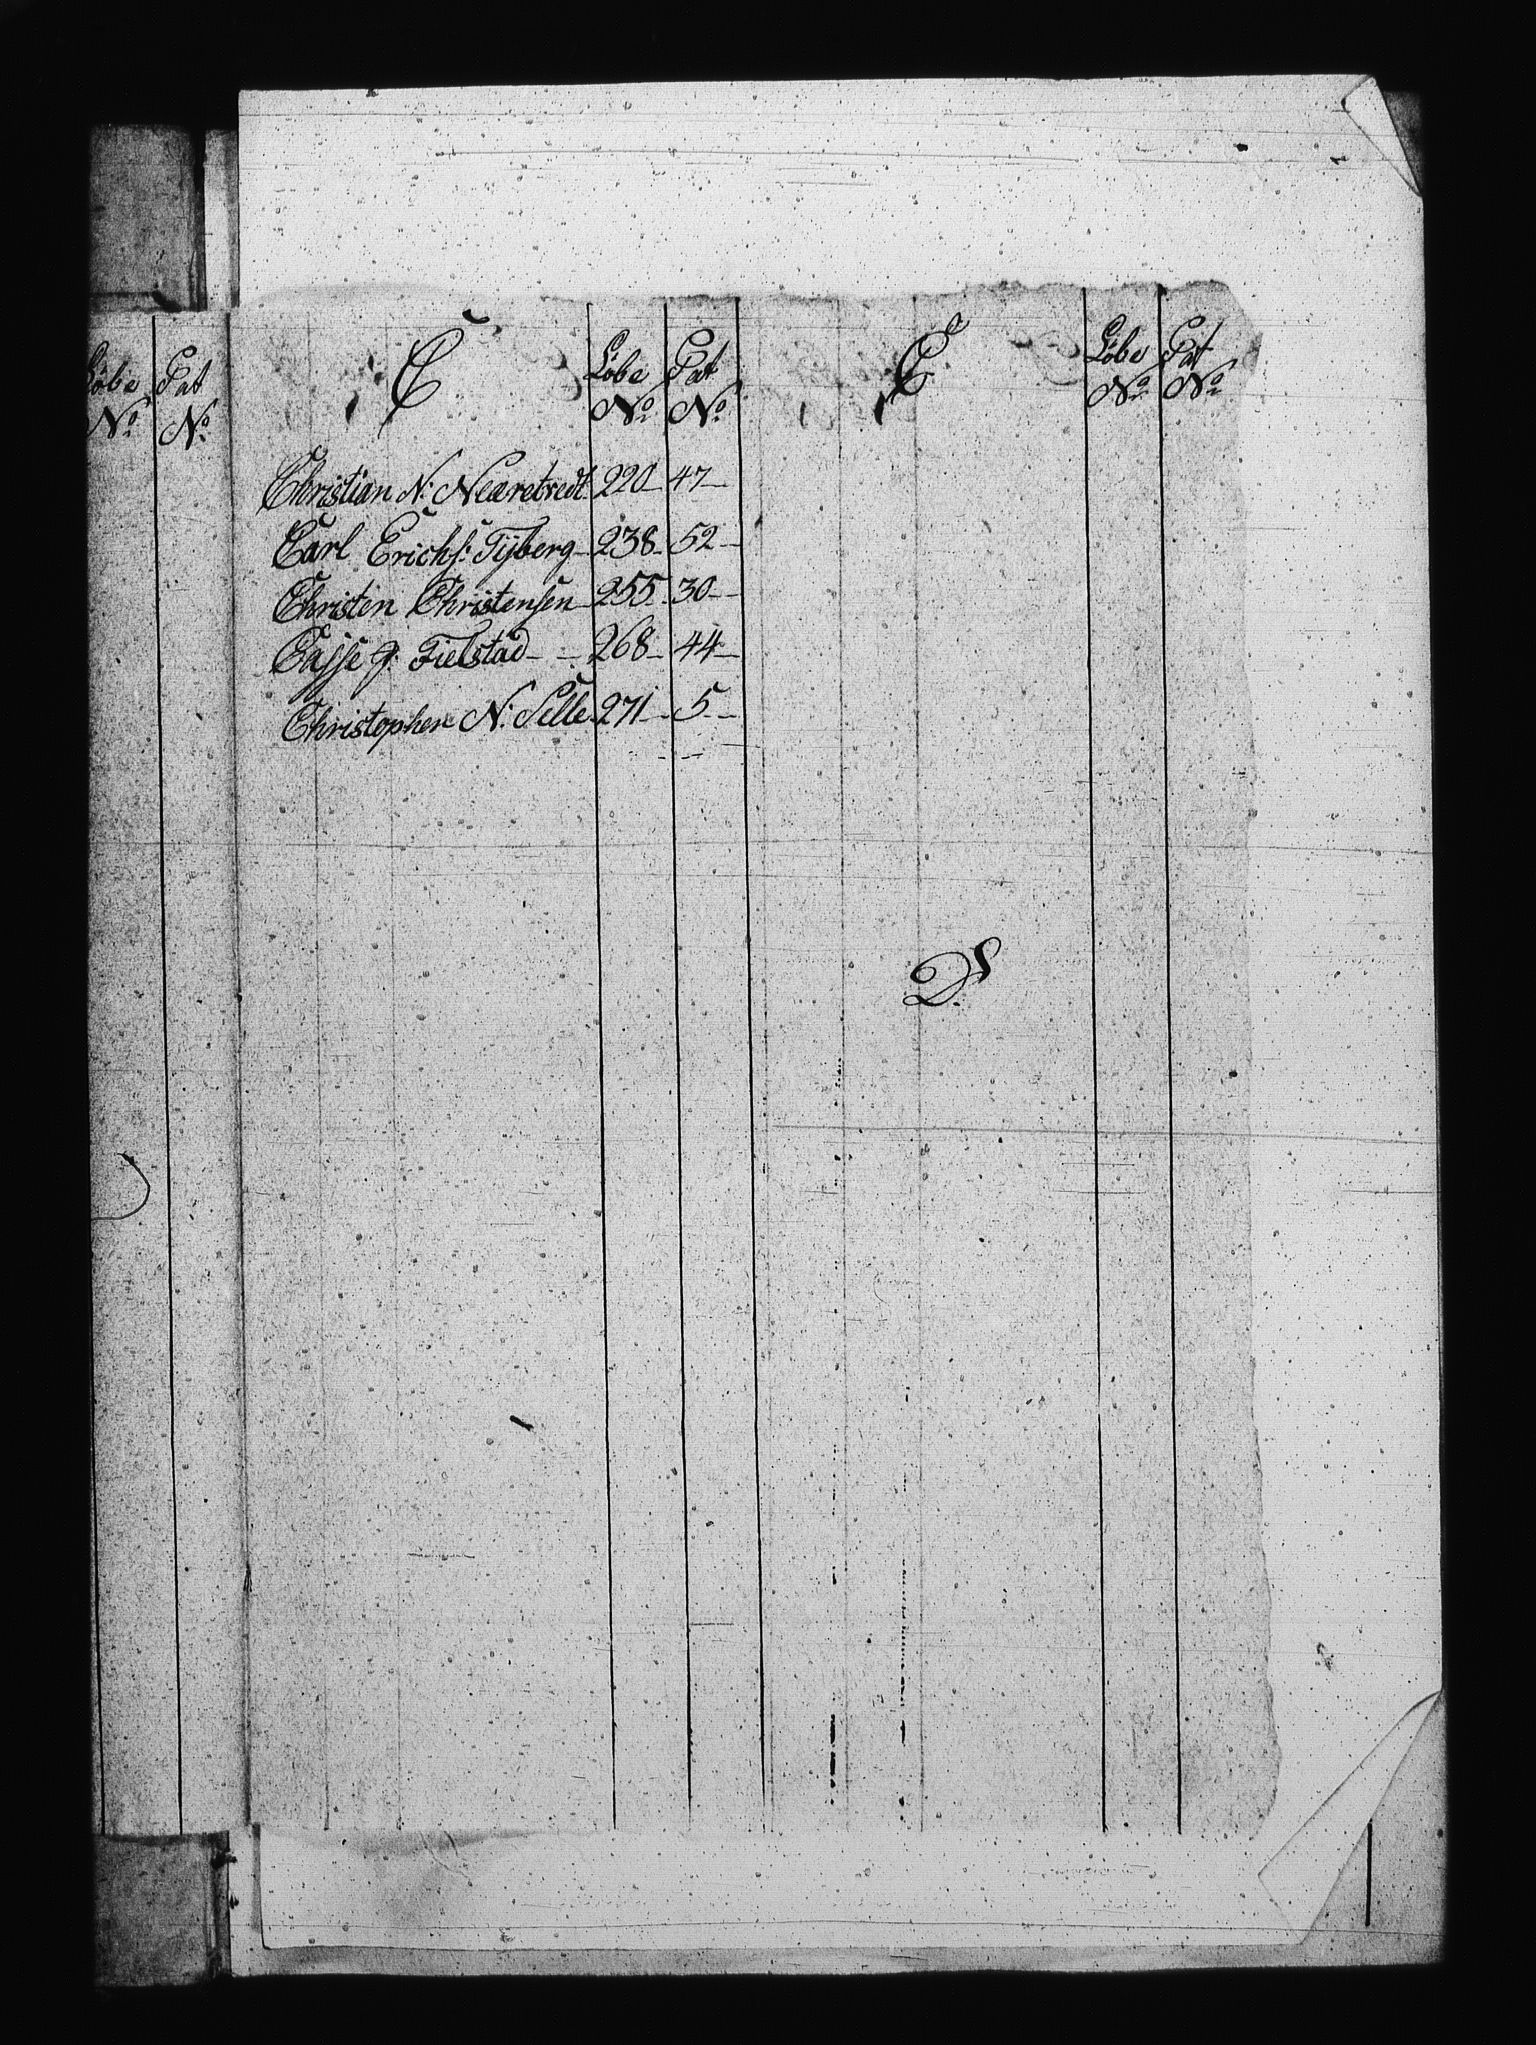 Löbe Pat
No No
C Löbe Pat C Löbe Pat
No No No No
Christian N: Nearetvedt 220 47
Carl Erichs: Tÿberg 238 52
Christen Christensen 255 30
Casse J: Fielstad 268 44
Christopher N: Selle 271 5
D.